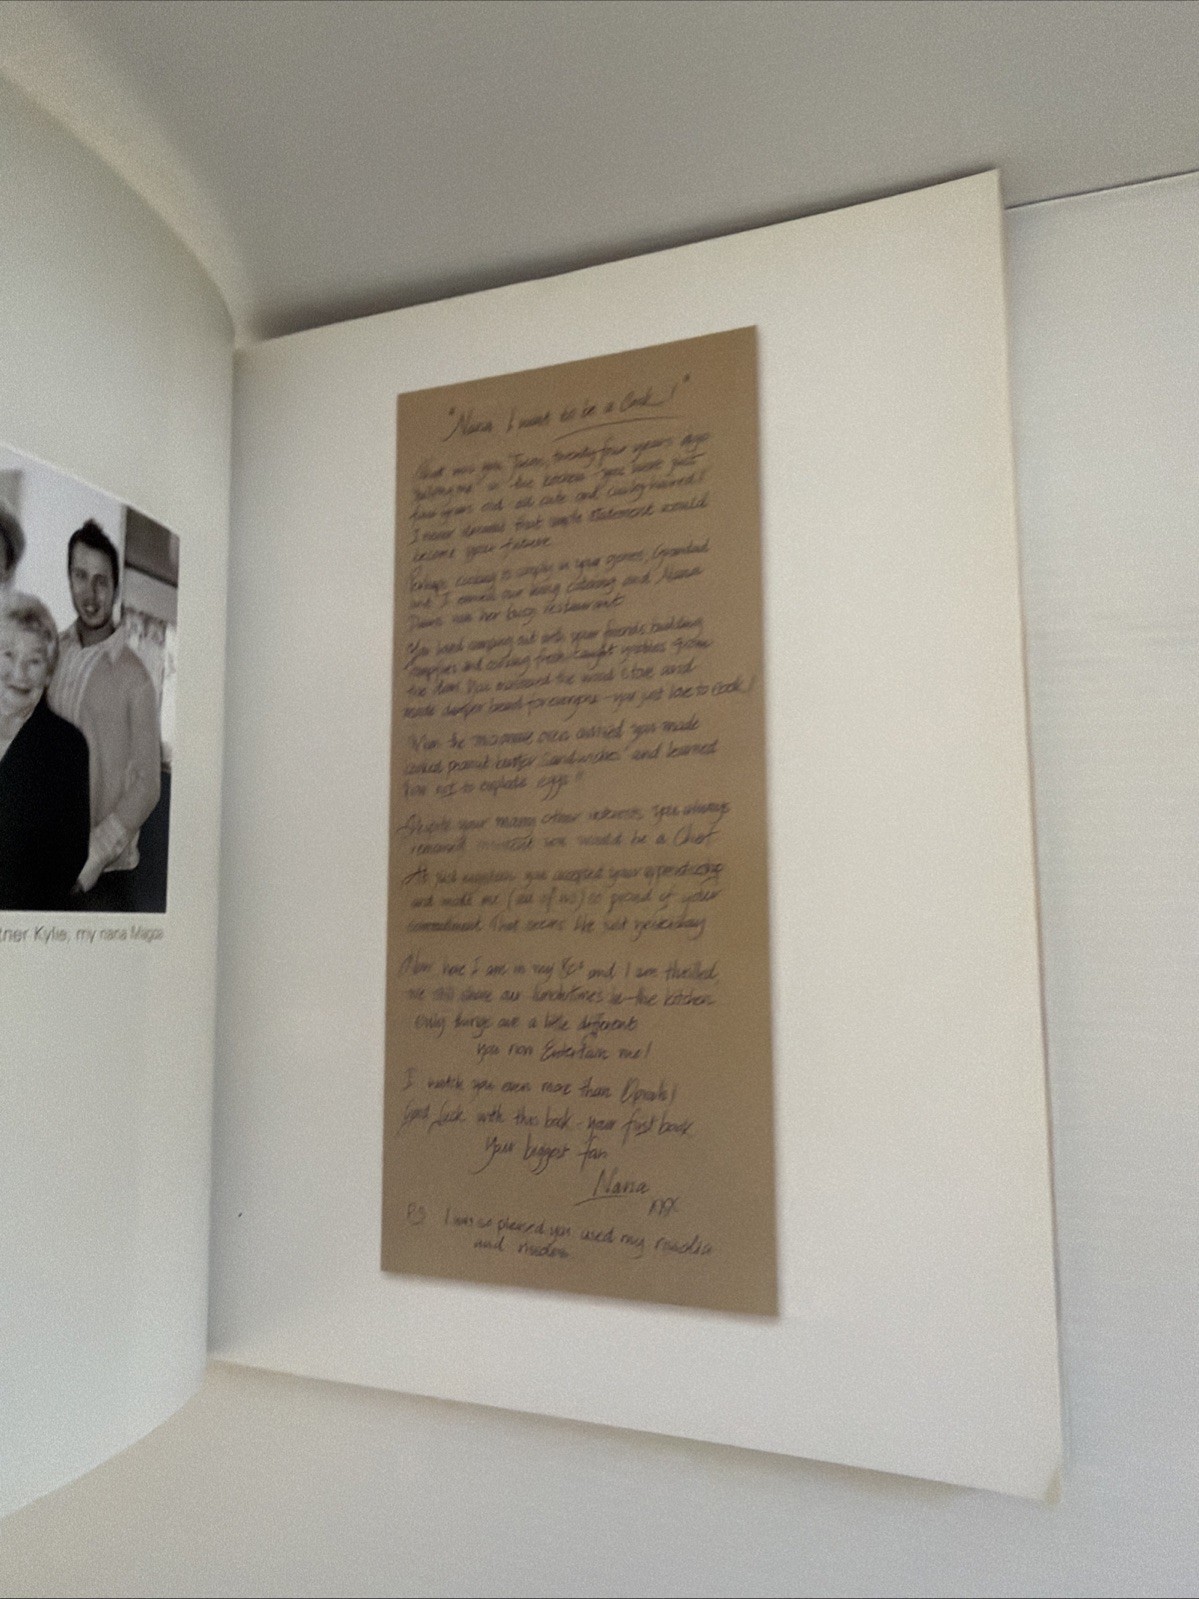 tner Kylie, my nana Magda
"Nana I want to be a Cook!"
was you twenty four years ago
in the kitchen you were just
four years old all cute and curly haired!!
I never dreamed that simple statement would
become your future
Perhaps cooking is simply in your genes, Grandad
and I owned our catering and Nana
ran her busy restaurant
You loved camping out with your friends building
campfires and cooking fresh caught yabbies from
the dam. You mastered the wood stove and
made damper bread for everyone - you just love to Cook!
When the microwave oven arrived you made
cooked peanut butter sandwiches and learned
how not to explode eggs!!
Despite your many other interests you always
remained insistent you would be a Chef
At just you accepted your apprenticeship
and made me (all of us) so proud of your
commitment. That seems like just yesterday
Now here I am in my 80s and I am thrilled,
we still share our lunchtimes in the kitchen
only things are a little different
you now Entertain me!
I watch you even more than Oprah!
Good luck with this book - your first book
Your biggest fan
Nana
xxx
PS I was so pleased you used my
and rissoles